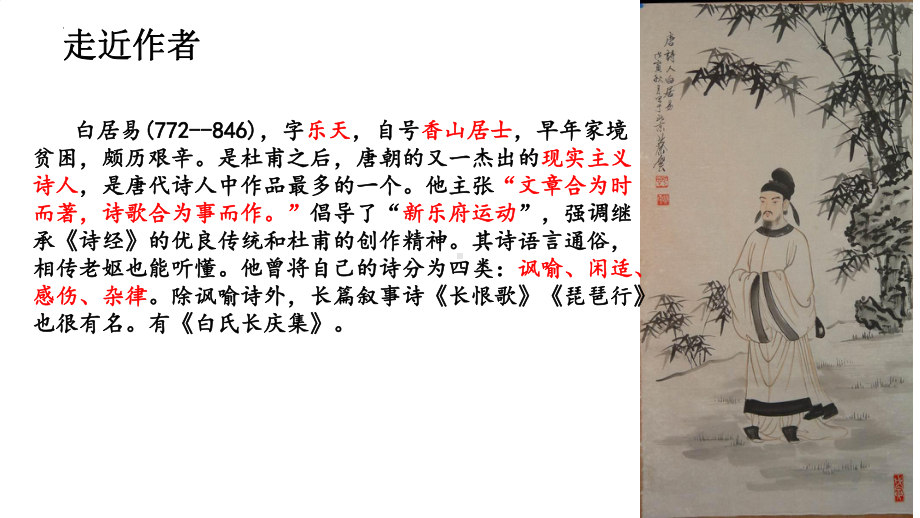 走近作者
白居易(772--846)，字乐天，自号香山居士，早年家境
贫困，颇历艰辛。是杜甫之后，唐朝的又一杰出的现实主义
诗人，是唐代诗人中作品最多的一个。他主张“文章合为时
而著，诗歌合为事而作。”倡导了“新乐府运动”，强调继
承《诗经》的优良传统和杜甫的创作精神。其诗语言通俗，
相传老妪也能听懂。他曾将自己的诗分为四类：讽喻、闲适、
感伤、杂律。除讽喻诗外，长篇叙事诗《长恨歌》《琵琶行》
也很有名。有《白氏长庆集》。
唐诗人白居易